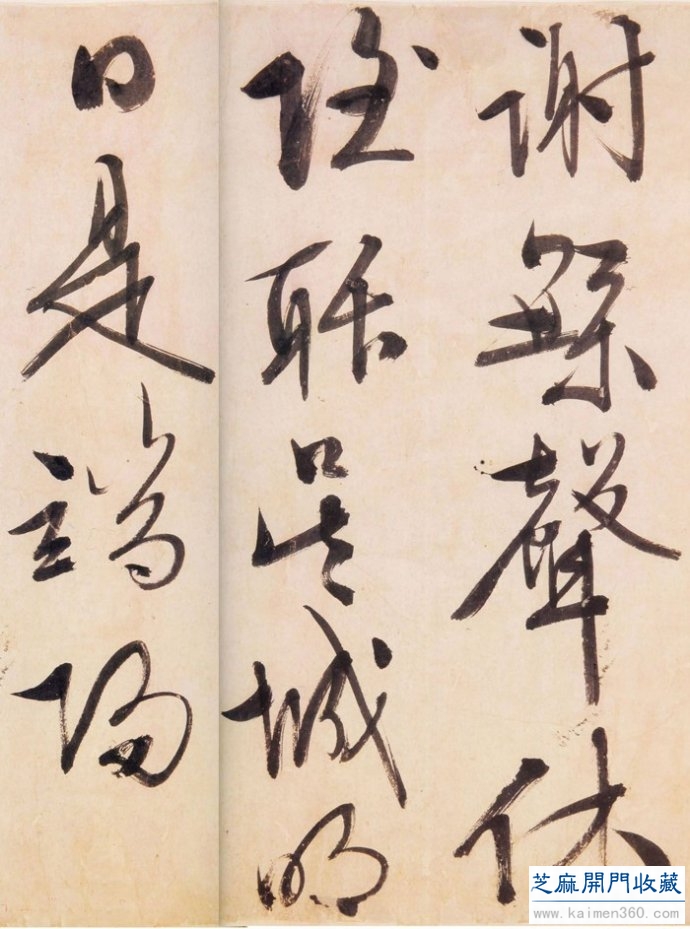 謝緐聲休
聒吳城明
日是端陽
芝麻開門收藏
www.kaimen360.com